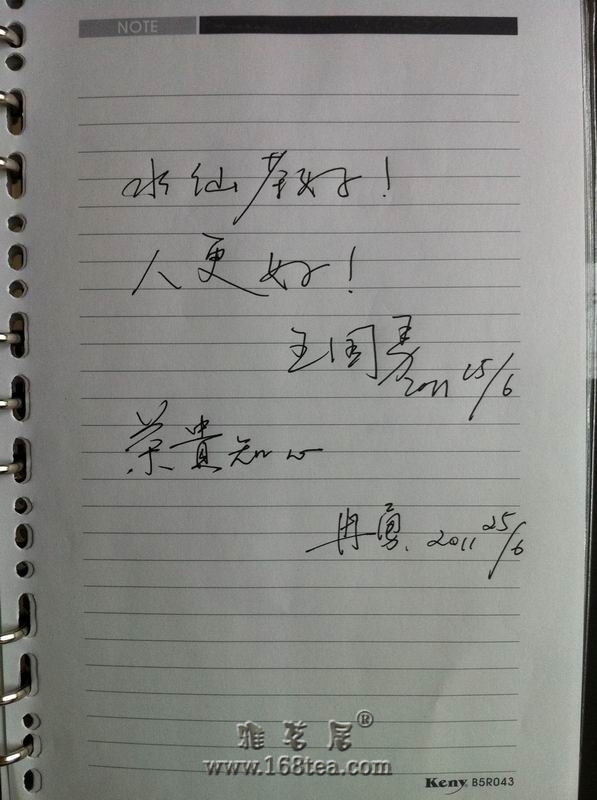 NOTE
水仙茶好！
人更好！
王国勇
2011 25/6
茶贵知心
冉勇. 2011 25/6
雅茗居®
www.168tea.com
Keny B5R043